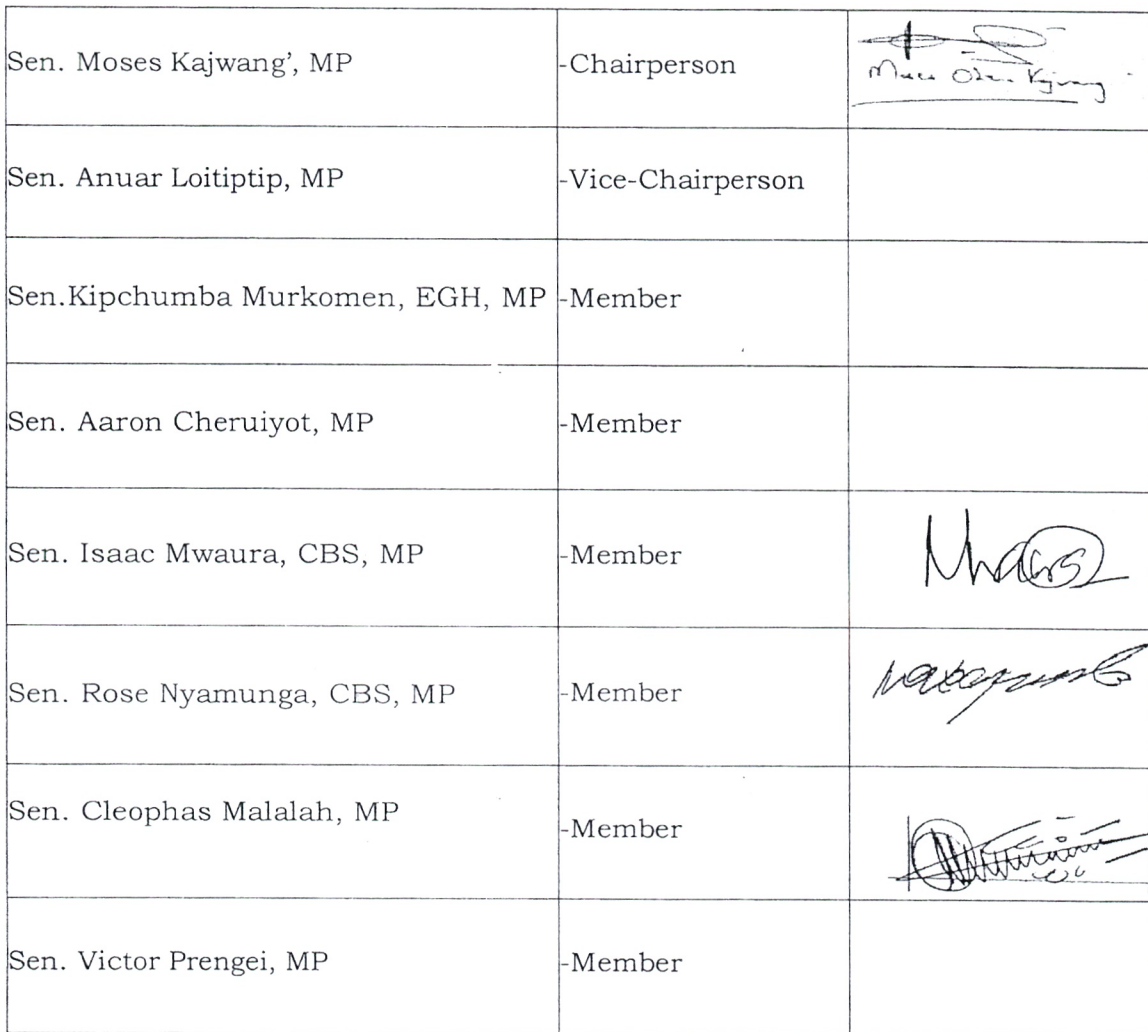 Sen. Moses Kajwang', MP -Chairperson
Kajwang
Sen. Anuar Loitiptip, MP -Vice-Chairperson
Sen.Kipchumba Murkomen, EGH, MP -Member
Sen. Aaron Cheruiyot, MP -Member
Sen. Isaac Mwaura, CBS, MP -Member
Sen. Rose Nyamunga, CBS, MP -Member
Sen. Cleophas Malalah, MP -Member
Sen. Victor Prengei, MP -Member